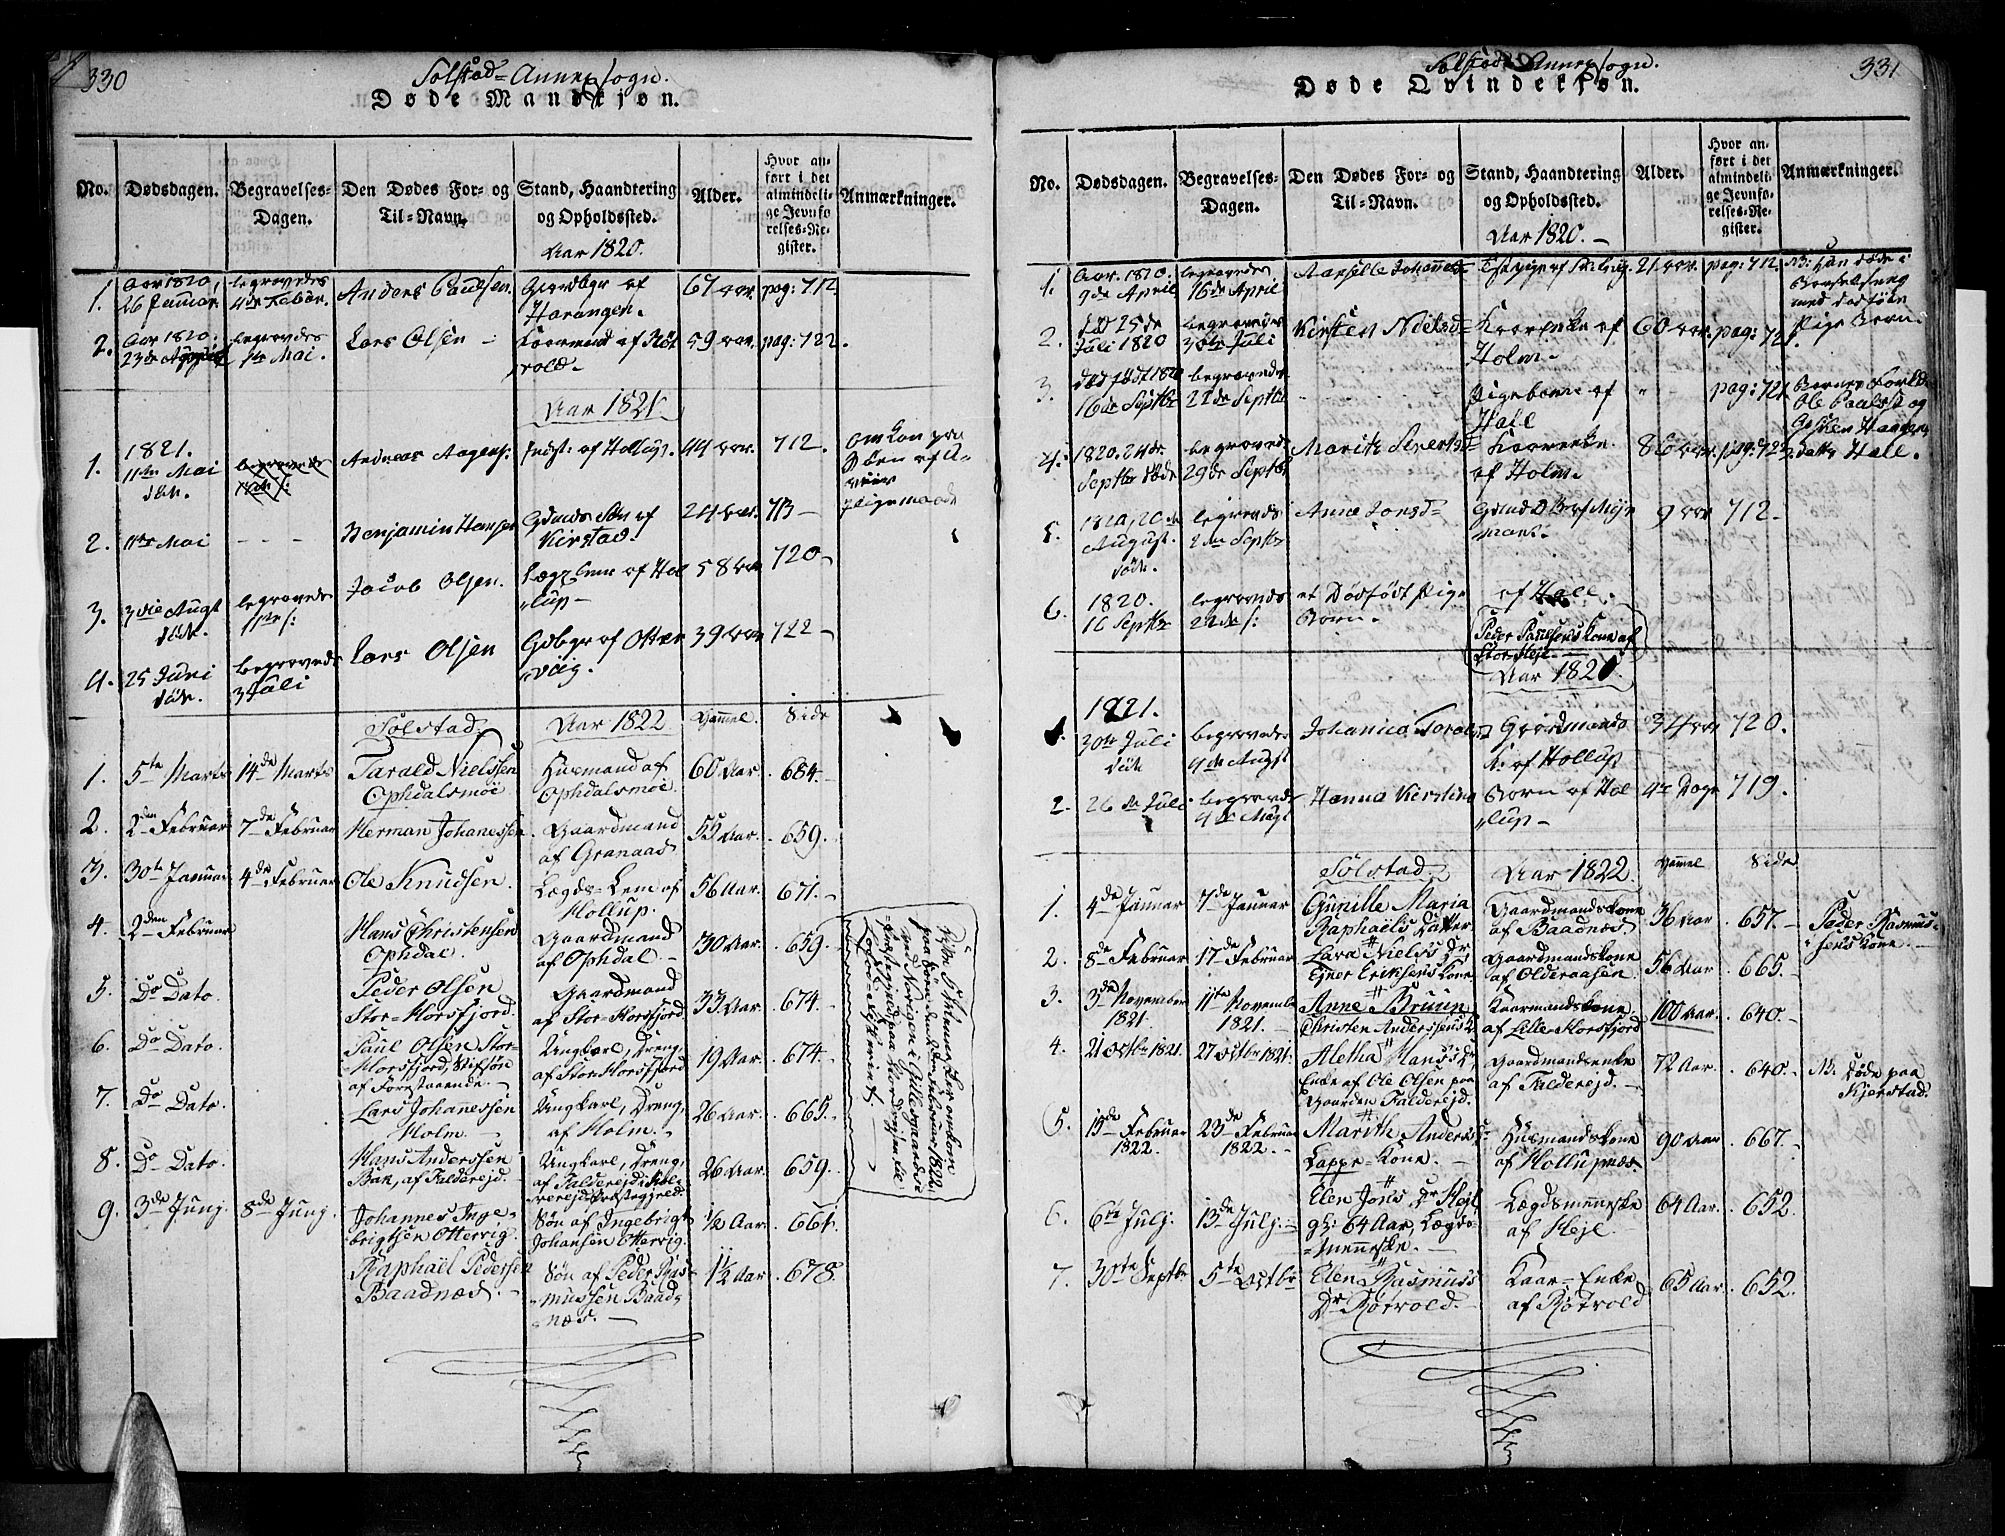 330
Solstad = Annex Sogn.
Døde Mandkjøn.
No.
Dødsdagen.
Begravelses-
Dagen.
Den Dødes For- og
Til-Navn.
Stand, Haandtering
og Opholdssted.
Alder.
Hvor an-
ført i det
almindeli-
ge Jevnfø-
relses-Re-
gister.
Anmærkninger.
Aar 1820.
1.
Aar 1820,
26 Januar.
begravedes
4de Febr.
Anders Paulsen.
Gaardbgr af
Harangen.
67 aar.
pag: 712.
2.
Aar 1820:
23de
begravedes
Mai.
Lars Olsen
af Röt
vold.
59 aar.
pag: 722.
Aar 1821.
1.
1821.
11te Mai
død.
Andreas Aagens:
Indst: af Hollup.
44 aar.
712.
Omkom paa
Söen
2.
11te Mai
Benjamin Hansen
Gdmds Søn af
Kirstad.
24 aar.
713
3.
3die Augt
døde.
begravedes
Jacob Olsen.
Lægs Lem af Hol
lup
58 aar
720
4.
25 Juni
døde.
begravede
3 Juli
Lars Olsen
Gdbgr af Otter
viig.
39 aar
722
Solstad.
Aar 1822
Gammel.
Side
1.
5te Marts
14de Marts
Tarald Nielssen
Ophdalsmöi
Huusmand af
Ophdalsmöi.
60 Aar.
684.
2.
2den Februar
7de Februar
Herman Johanessen
Gaardmand
af Granaas
55 Aar.
659.
3.
30te Januar
4de Februar
Ole Knudsen.
Lægds-Lem af
Hollup.
56 Aar.
671.
4.
2den Februar
Hans Christensen
Ophdal.
Gaardmand
af Ophdal.
30 Aar.
659.
5.
Do Dato.
Peder Olsen
Stor-Horsfjord.
Gaardmand
af Stor-Horsfjord
33 Aar.
674.
6.
Do Dato.
Paul Olsen Stor-
Horsfjord, Stifsøn
af Forestaaende.
Ungkarl, Dreng,
af Stor Horsfjord
19 Aar.
674.
7.
Do Dato.
Lars Johannessen
Holm.
Ungkarl, Dreng,
af Holm.
26 Aar.
665.
8.
Do Dato.
Hans Anderssen
Bak, af Falderejd.
Ungkarl, Dreng,
af Falderejd,
26 Aar.
659.
9.
3de Junj.
8de Junj.
Johannes Inge-
brigtsen Ottervig.
Søn af Ingebrigt
Johansen Ottervig.
1/2 Aar.
664.
Raphaël Pedersen
Baadnæs.
Søn af Peder Ras-
mussen Baad-
næs.
1½ Aar
678.
Disse 5 Mænner ere omkom
paa Søen den 2den Februar 1822.
331
Solstad Annex Sogn.
Døde Qvindekjøn.
No.
Dødsdagen.
Begravelses-
Dagen.
Den Dødes For- og
Til-Navn.
Stand, Haandtering
og Opholdssted.
Alder.
Hvor an-
ført i det
almindeli-
ge Jevnfø-
relses-Re-
gister.
Anmærkninger.
Aar 1820.
1.
Aar 1820.
9de April
begravedes
16de April
21 aar.
pag: 712.
NB: hun døde i
Barselseng
med dødføde
Pige Barn.
2.
død 25de
Juli 1820
begravedes
30te Juli
Kirsten Nielsd
af
Holm.
60 aar.
pag: 721.
3.
dødfödt 1820
16de Septbr
begravedes
22de Septbr
Pigebarn af
Hall
pag: 721
Barnes Forld
Ole Paulsen og
4.
1820. 24de
Septbr døde
begravedes
29de Septbr
Marith Sivertsd
Kaarenke.
af Holm.
86 aar.
pag: 722
Hall.
5.
1820, 20de
August.
døde.
begravds
2den Septbr
Anna Jonsd
9 aar
712.
6.
1820.
16 Septbr
begravds
22de
et Dødfödt Pige
Barn.
af Hall.
Peder Paulsens Kone af
Stor-Heje.
Aar 1821.
1.
1821.
30te Juli
døde
begravedes
4de Augst
Johanna
Gaardmands
K: af Hollup
34 aar
720.
2.
26de Juli
begravedes
4de Augst
Hanna Kirstina
Barn af Hol
lup
4re Dage
719.
Solstad.
Aar 1822.
Gammel
Side
1.
4de Januar
7de Januar
Gunille Maria
Raphaëls Datter.
Gaardmandskone
af Baadnæs.
36 Aar
657.
Peder Rasmus-
sens Kone.
2.
8de Februar
17de Februar
Lara Niels Dr
Ejner Eriksens Kone
Gaardmandskone
af Olderaasen.
56 Aar
665.
3.
3de November
1821.
11te Novembr
1821.
Anne Bruun
Christen Anderssens K.
Kaarmandskone,
af Lille Horsfjord
100 Aar.
640.
4.
21 Octbr 1821.
27 Octbr 1821.
Aletha Hans Dr,
Enke af Ole Olsen paa
Gaarden Falderejd.
Gaardmandsenke
af Falderejd.
72 Aar.
640.
NB. Døde paa
Kjerstad.
5.
15de Februar
1822.
23de Februar
1822.
Marith Anders
Lappe-Kone.
Huusmandskone
af Hollupnæs
90 Aar
667.
6.
6te Julj.
13de Julj.
Elen Jons Dr Hejl
gl: 64 Aar, Lægds-
menneske.
Lægdsmenneske
af Hejl.
64 Aar.
652.
7.
30te Septbr
5te Octbr
Elen Rasmuss
Dr Røtvold.
Kaar-Enke
af Røtvold
65 Aar.
652.